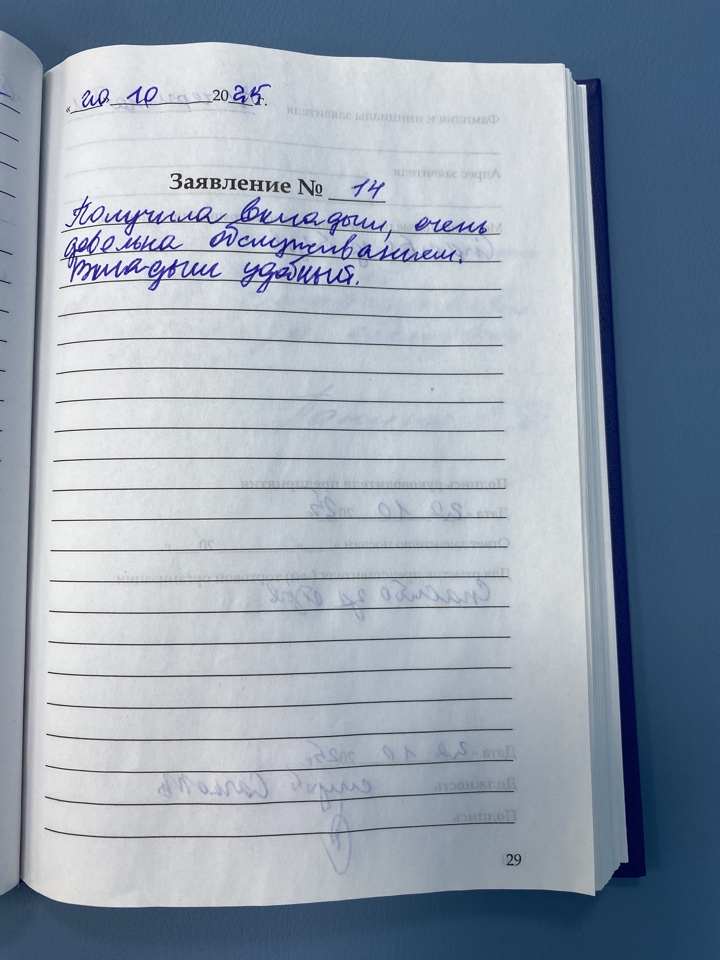 « 20» 10 2025г.
Заявление № 14
Получила вкладыш, очень
довольна обслуживанием.
Вкладыш удобный.
29